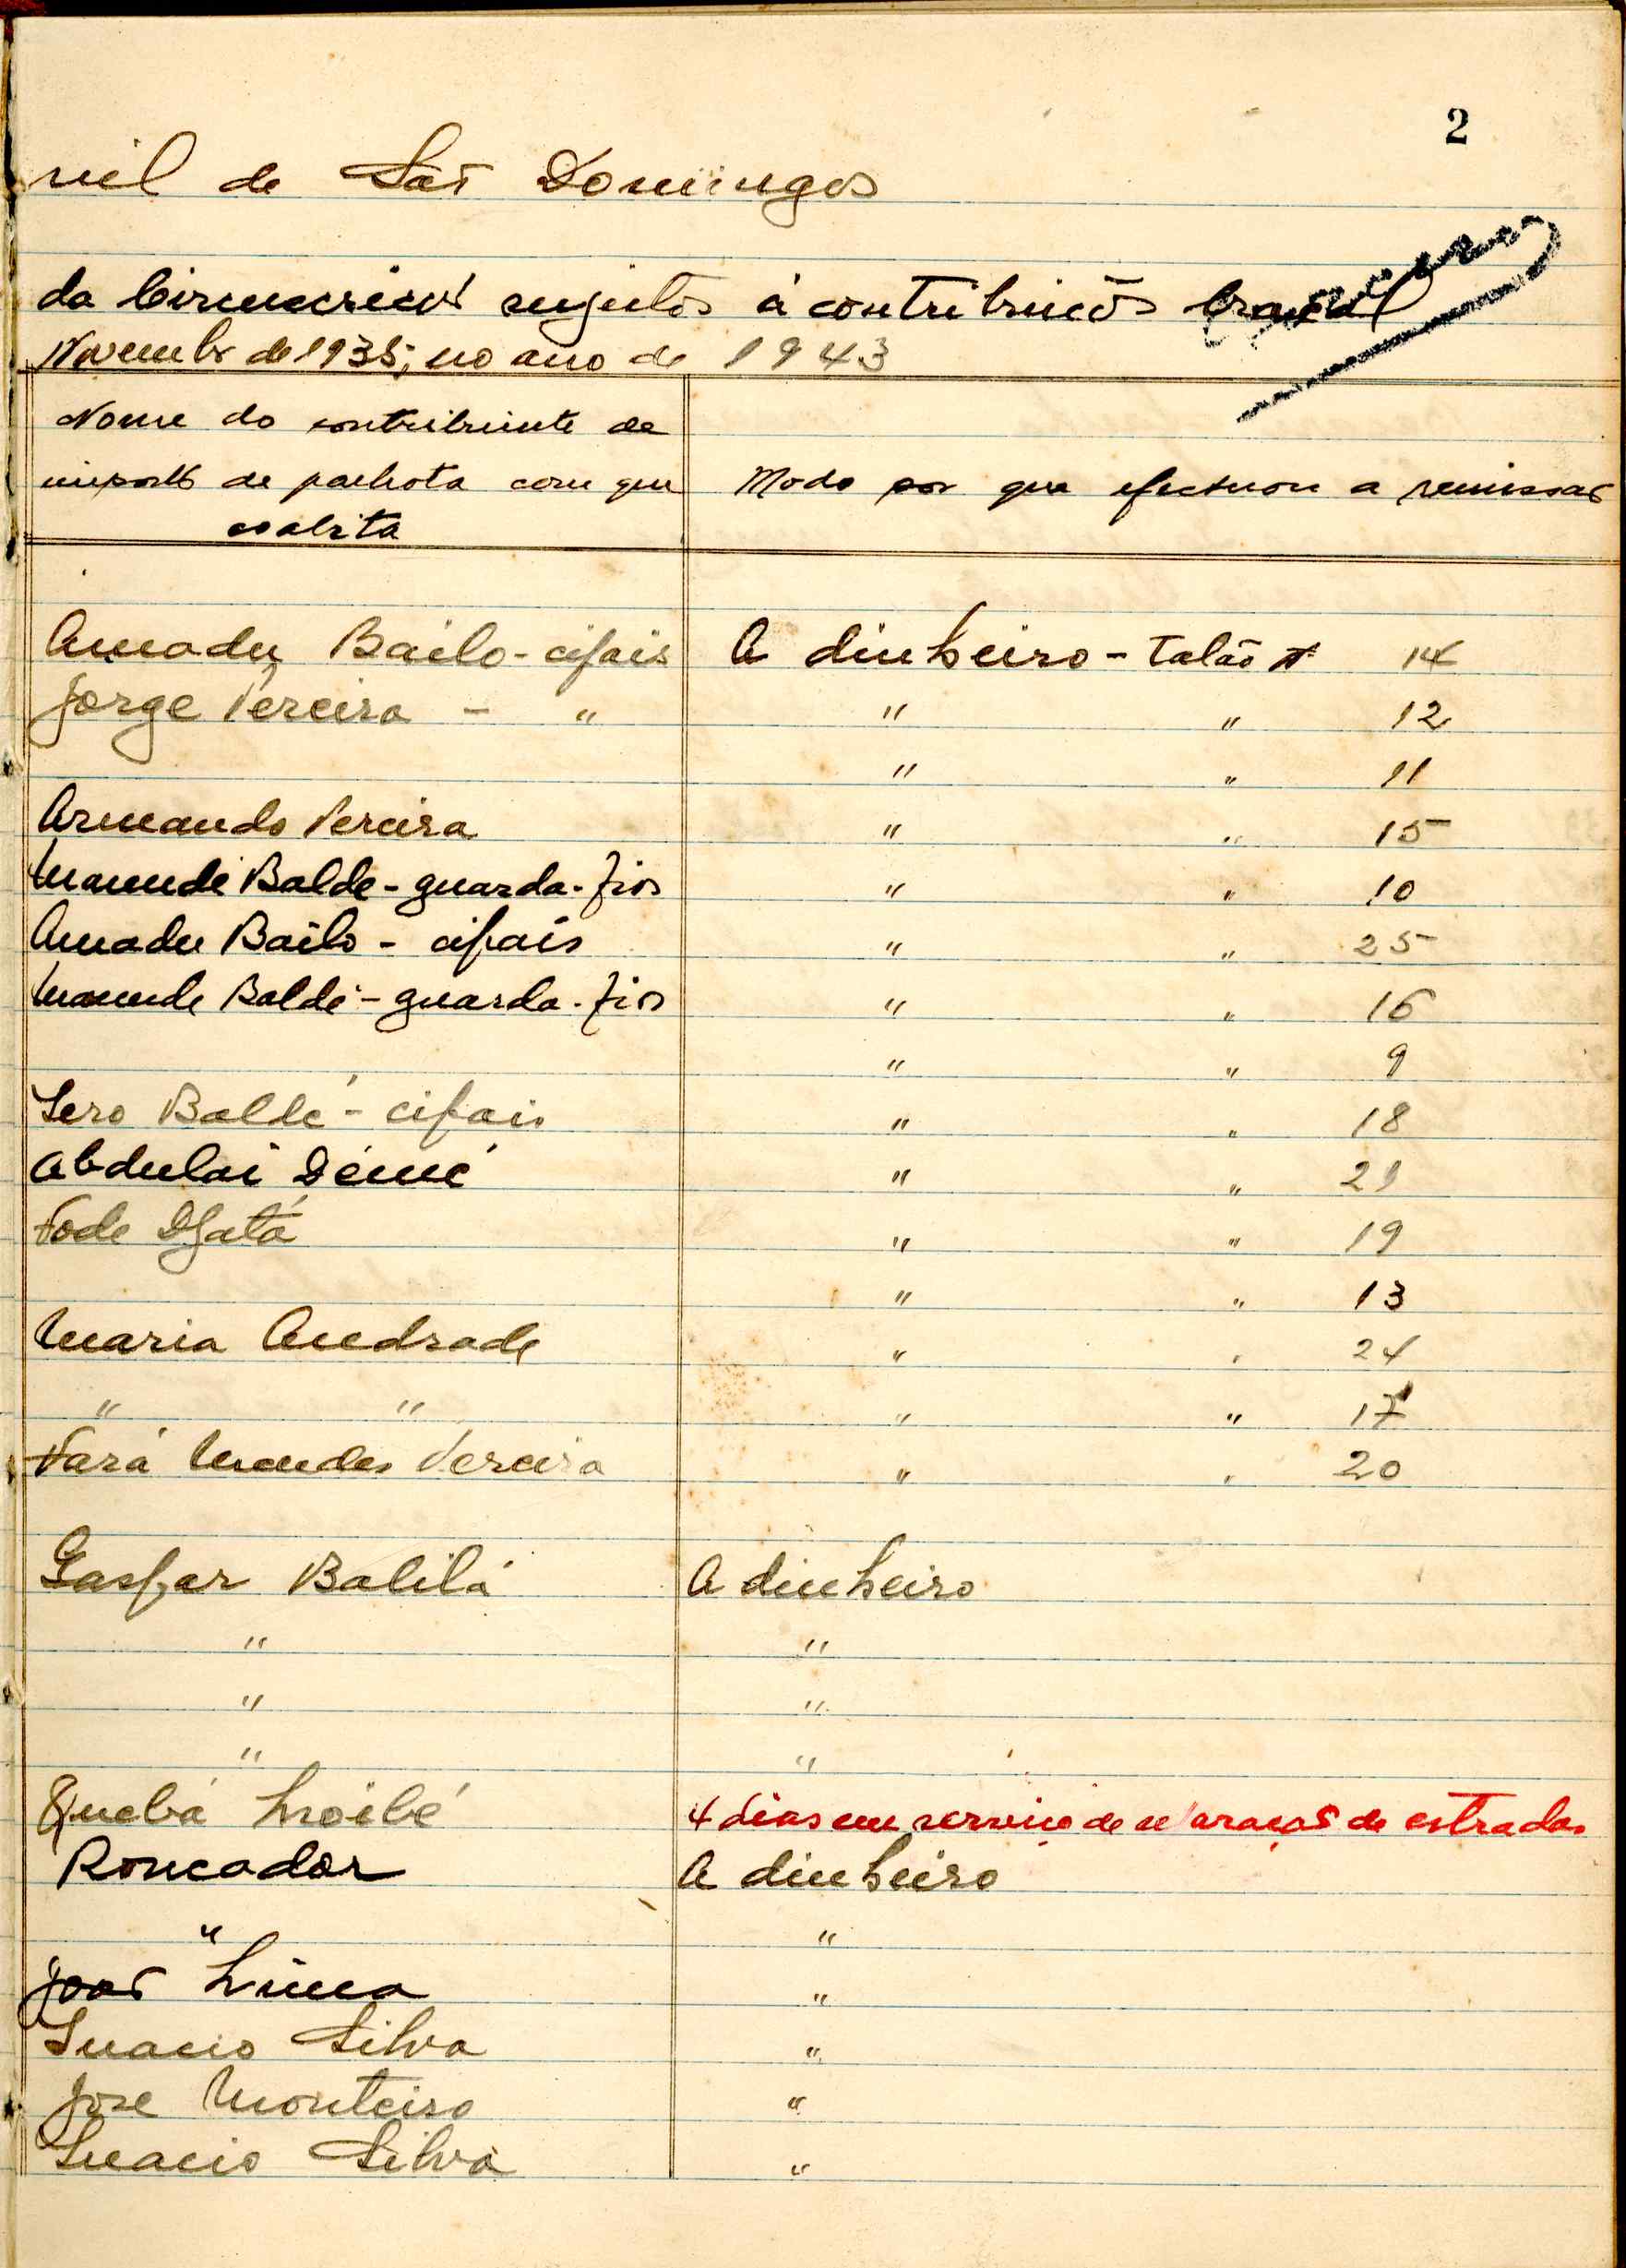 2
vil de São Domingos
da Circunscrição sujeitos á contribuição braçal
Novembro de 1935, no ano de 1943
Nome do contribuinte de
imposto de palhota com que
coabita
Modo por que efectuou a remissão
Amadu Bailo - cipais A dinheiro - Talão nº 14
Jorge Pereira - " " " 12
" " 11
Armando Pereira " " 15
Mamudé Balde - guarda-fios " " 10
Amadu Bailo - cipais " " 25
Mamude Baldé - guarda-fios " " 16
" " 9
Sero Baldé - cipais " " 18
Abdulai Démé " " 21
Fode Djatá " " 19
" " 13
Maria Andrade " " 24
" " " " 17
Fará Mendes Pereira " " 20
Gaspar Balilá A dinheiro
" "
" "
" "
Quebá 4 dias em serviço de reparação de estradas
Roncador A dinheiro
" "
João Lima "
Inacio Silva "
Jose Monteiro "
Inacio Silva "